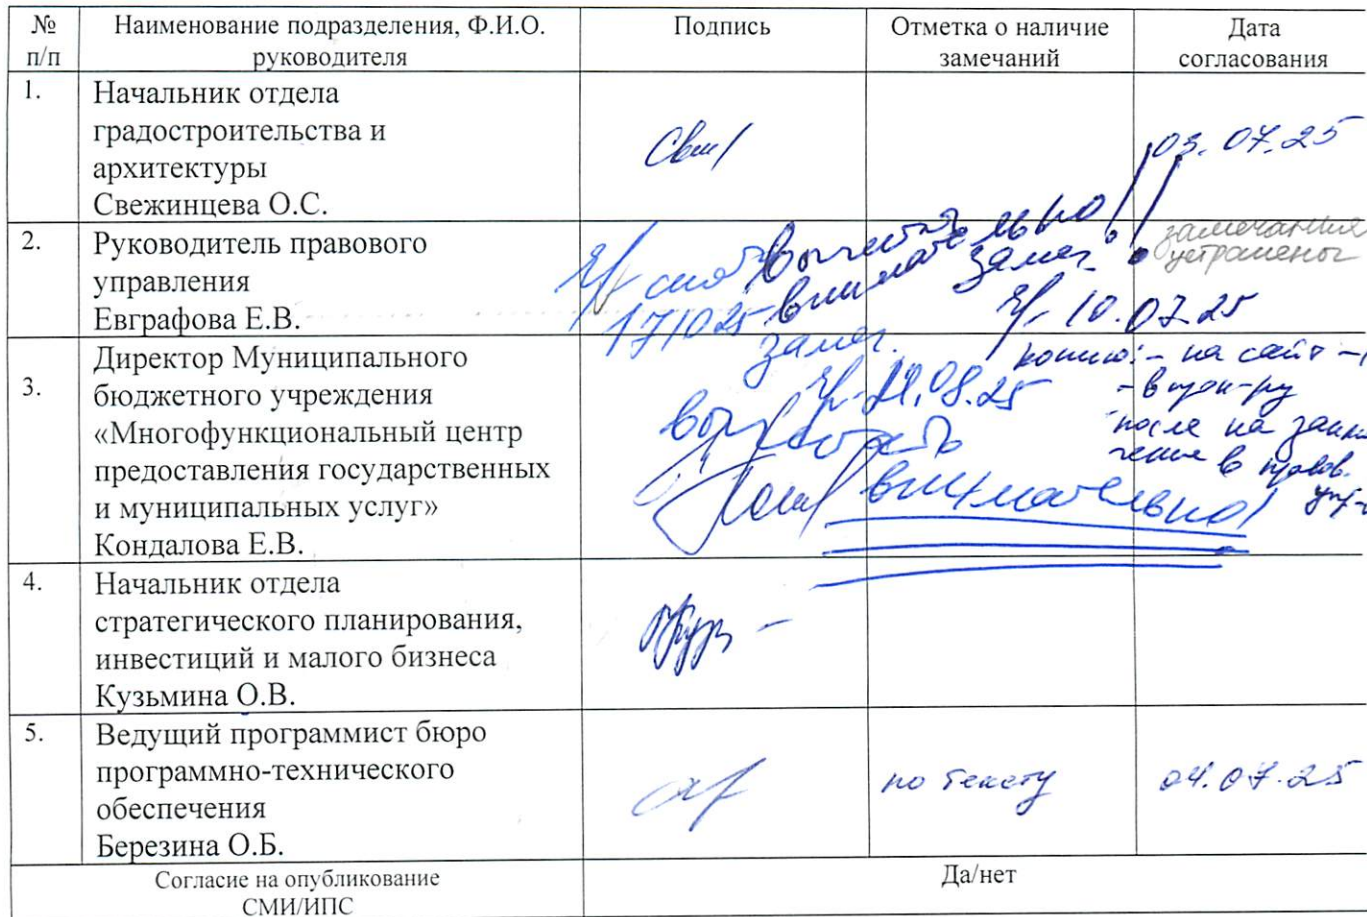 № п/п
Наименование подразделения, Ф.И.О. руководителя
Подпись
Отметка о наличие замечаний
Дата согласования
1.
Начальник отдела
градостроительства и
архитектуры
Свежинцева О.С.
03.07.25
2.
Руководитель правового
управления
Евграфова Е.В.
вычитать
внимательно!
замеч.
замечания
устранены
10.07.25
171025
замеч.
3.
Директор Муниципального
бюджетного учреждения
«Многофункциональный центр
предоставления государственных
и муниципальных услуг»
Кондалова Е.В.
08.25
вычитать
внимательно!
копию: - на сайт -
после на
в правов.
4.
Начальник отдела
стратегического планирования,
инвестиций и малого бизнеса
Кузьмина О.В.
5.
Ведущий программист бюро
программно-технического
обеспечения
Березина О.Б.
по тексту
04.07.25
Согласие на опубликование
СМИ/ИПС
Да/нет